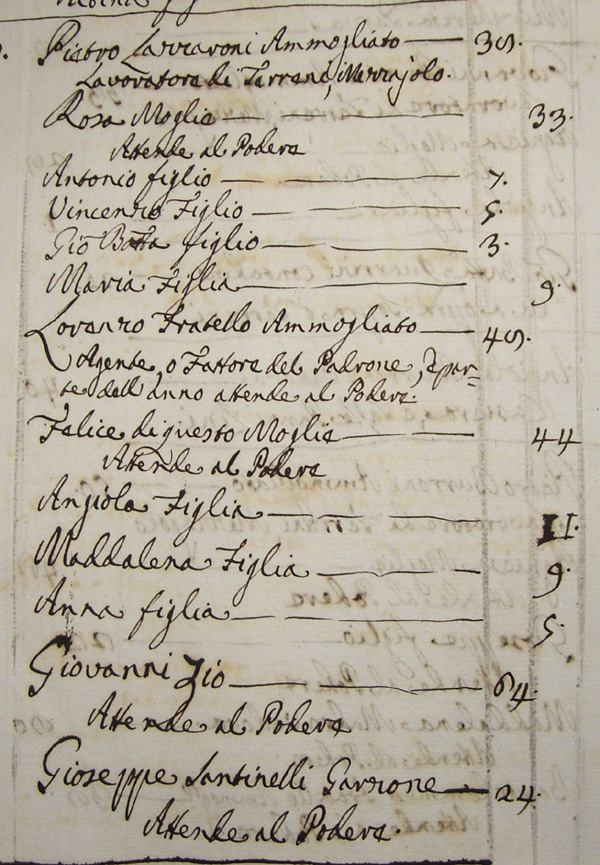 Pietro Lazzaroni Ammogliato — 39.
Lavoratore di Terreni, Mezzajolo.
Rosa Moglie — 33.
Attende al Podere
Antonio figlio — 7.
Vincenzo Figlio — 5.
Gio Batta figlio — 3.
Maria Figlia — 9.
Lorenzo Fratello Ammogliato — 49.
Agente, o Fattore del Padrone, e par-
te dell'anno attende al Podere.
Felice di questo Moglie — 44
Attende al Podere
Angiola Figlia — 11.
Maddalena Figlia — 9.
Anna figlia — 5.
Giovanni Zio — 64.
Attende al Podere
Gioseppe Santinelli Garzone — 24.
Attende al Podere.